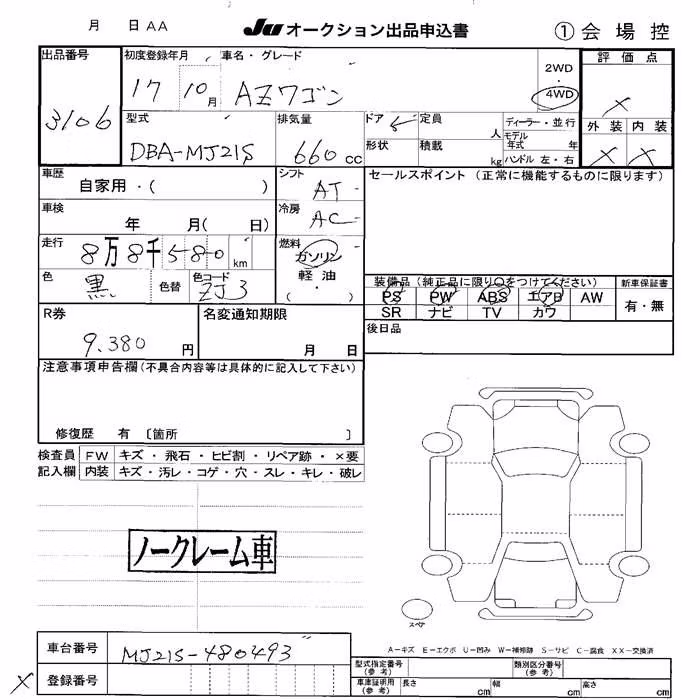 月 日 AA JU オークション出品申込書 ① 会場控
出品番号 初度登録年月 車名・グレード 2WD・4WD 評価点
3106 17 10月 AZワゴン ×
型式 排気量 ドア 定員 人 ディーラー・並行 外装 内装
DBA-MJ21S 660 cc 形状 積載 kg モデル年式 年 × ×
ハンドル 左・右
車歴 自家用・( ) シフト AT セールスポイント (正常に機能するものに限ります)
車検 年 月( 日) 冷房 AC
走行 8万8千580km 燃料 ガソリン
軽油
・
( )
色 黒 色替 色コード ZJ3 装備品 (純正品に限り○をつけてください) 新車保証書
PS PW ABS エアB AW 有・無
SR ナビ TV カワ
R券 名変通知期限 後日品
9,380 円 月 日
注意事項申告欄 (不具合内容等は具体的に記入して下さい)
修復歴 有 〔箇所 〕
検査員 FW キズ・飛石・ヒビ割・リペア跡・×要
記入欄 内装 キズ・汚レ・コゲ・穴・スレ・キレ・破レ
ノークレーム車
スペア
A-キズ E-エクボ U-凹み W-補修跡 S-サビ C-腐食 XX-交換済
車台番号 MJ21S-480493
型式指定番号 (参考) 類別区分番号 (参考)
× 登録番号 車庫証明用 (参考) 長さ cm 幅 cm 高さ cm